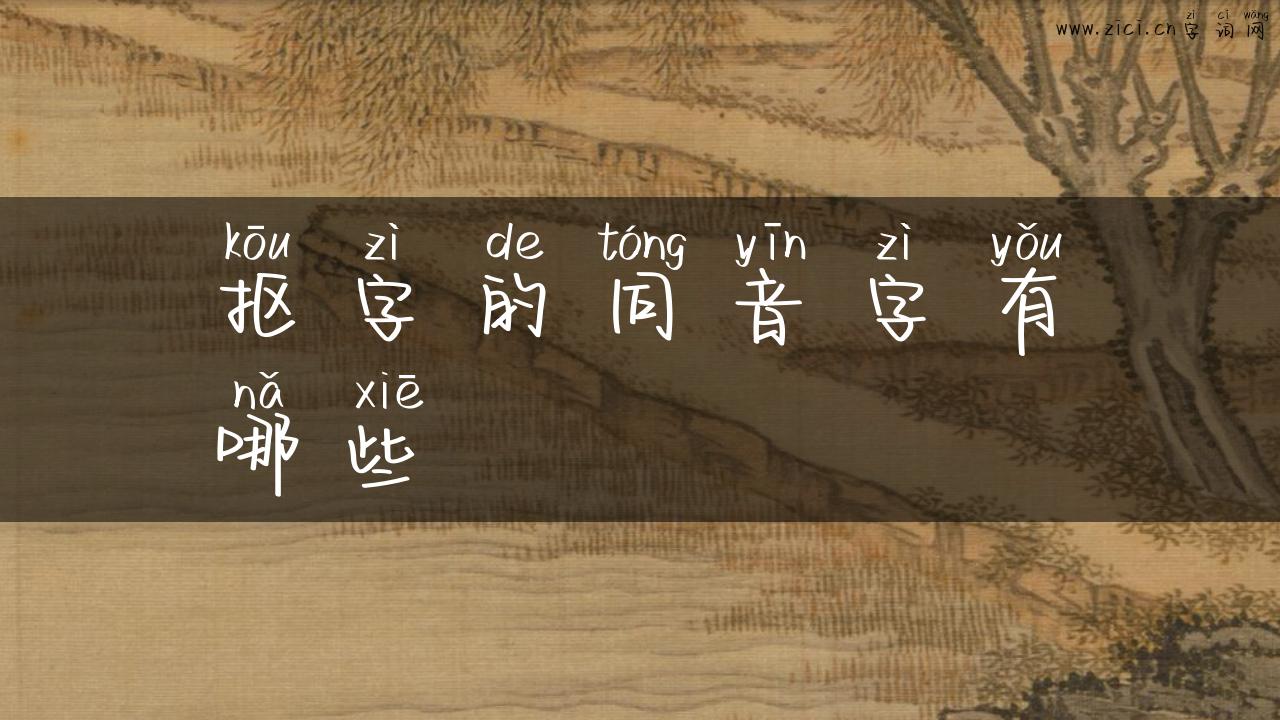 zì cí wǎng
www.zici.cn字词网
kōu zì de tóng yīn zì yǒu
抠字的同音字有
nǎ xiē
哪些